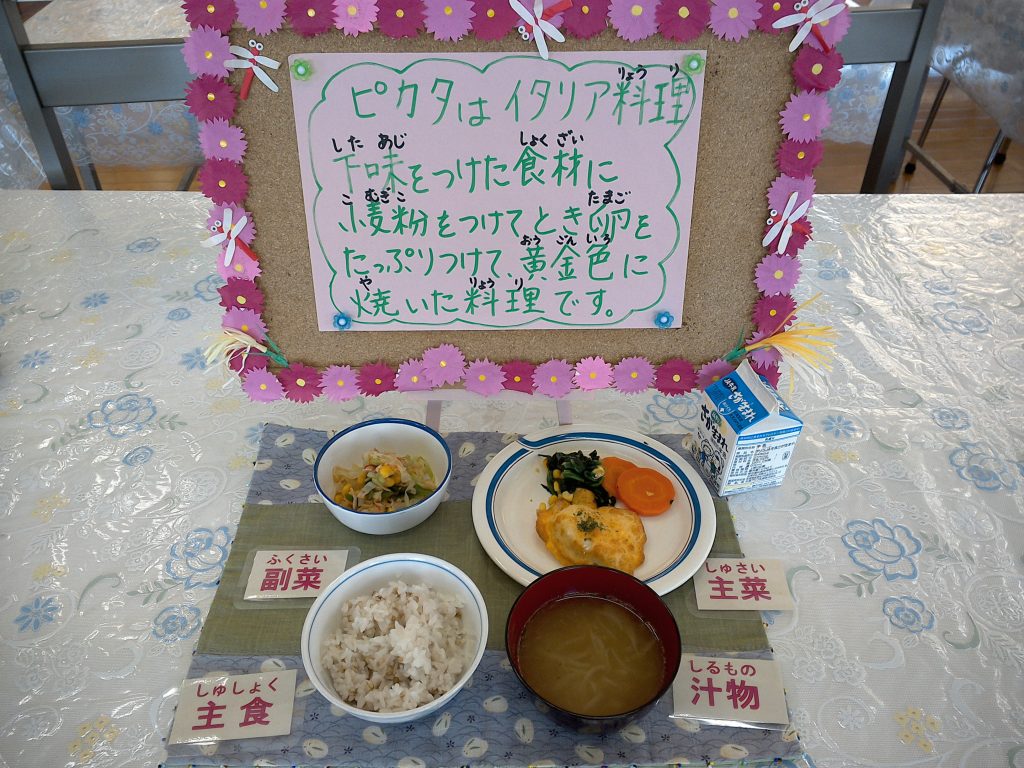 ピカタはイタリア料理
りょう り
下味をつけた食材に
した あじ
しょく ざい
小麦粉をつけてとき卵を
こ むぎ こ
たまご
たっぷりつけて、黄金色に
おう ごん いろ
焼いた料理です。
や
りょう り
ふくさい
副菜
しゅさい
主菜
しゅしょく
主食
しるもの
汁物